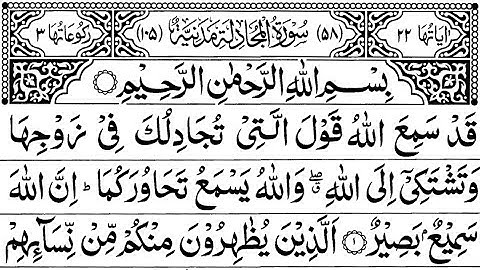 اٰیَاتُهَا ۲۲ (۵۸) سُوْرَةُ الْمُجَادَلَةِ مَدَنِیَّةٌ (۱۰۵) رُكُوْعَاتُهَا ۳
بِسْمِ اللّٰهِ الرَّحْمٰنِ الرَّحِیْمِ
قَدْ سَمِعَ اللّٰهُ قَوْلَ الَّتِیْ تُجَادِلُكَ فِیْ زَوْجِهَا
وَتَشْتَكِیْۤ اِلَی اللّٰهِ ۖۗ وَاللّٰهُ یَسْمَعُ تَحَاوُرَكُمَا ؕ اِنَّ اللّٰهَ
سَمِیْعٌۢ بَصِیْرٌ ۱ اَلَّذِیْنَ یُظٰهِرُوْنَ مِنْكُمْ مِّنْ نِّسَآىِٕهِمْ